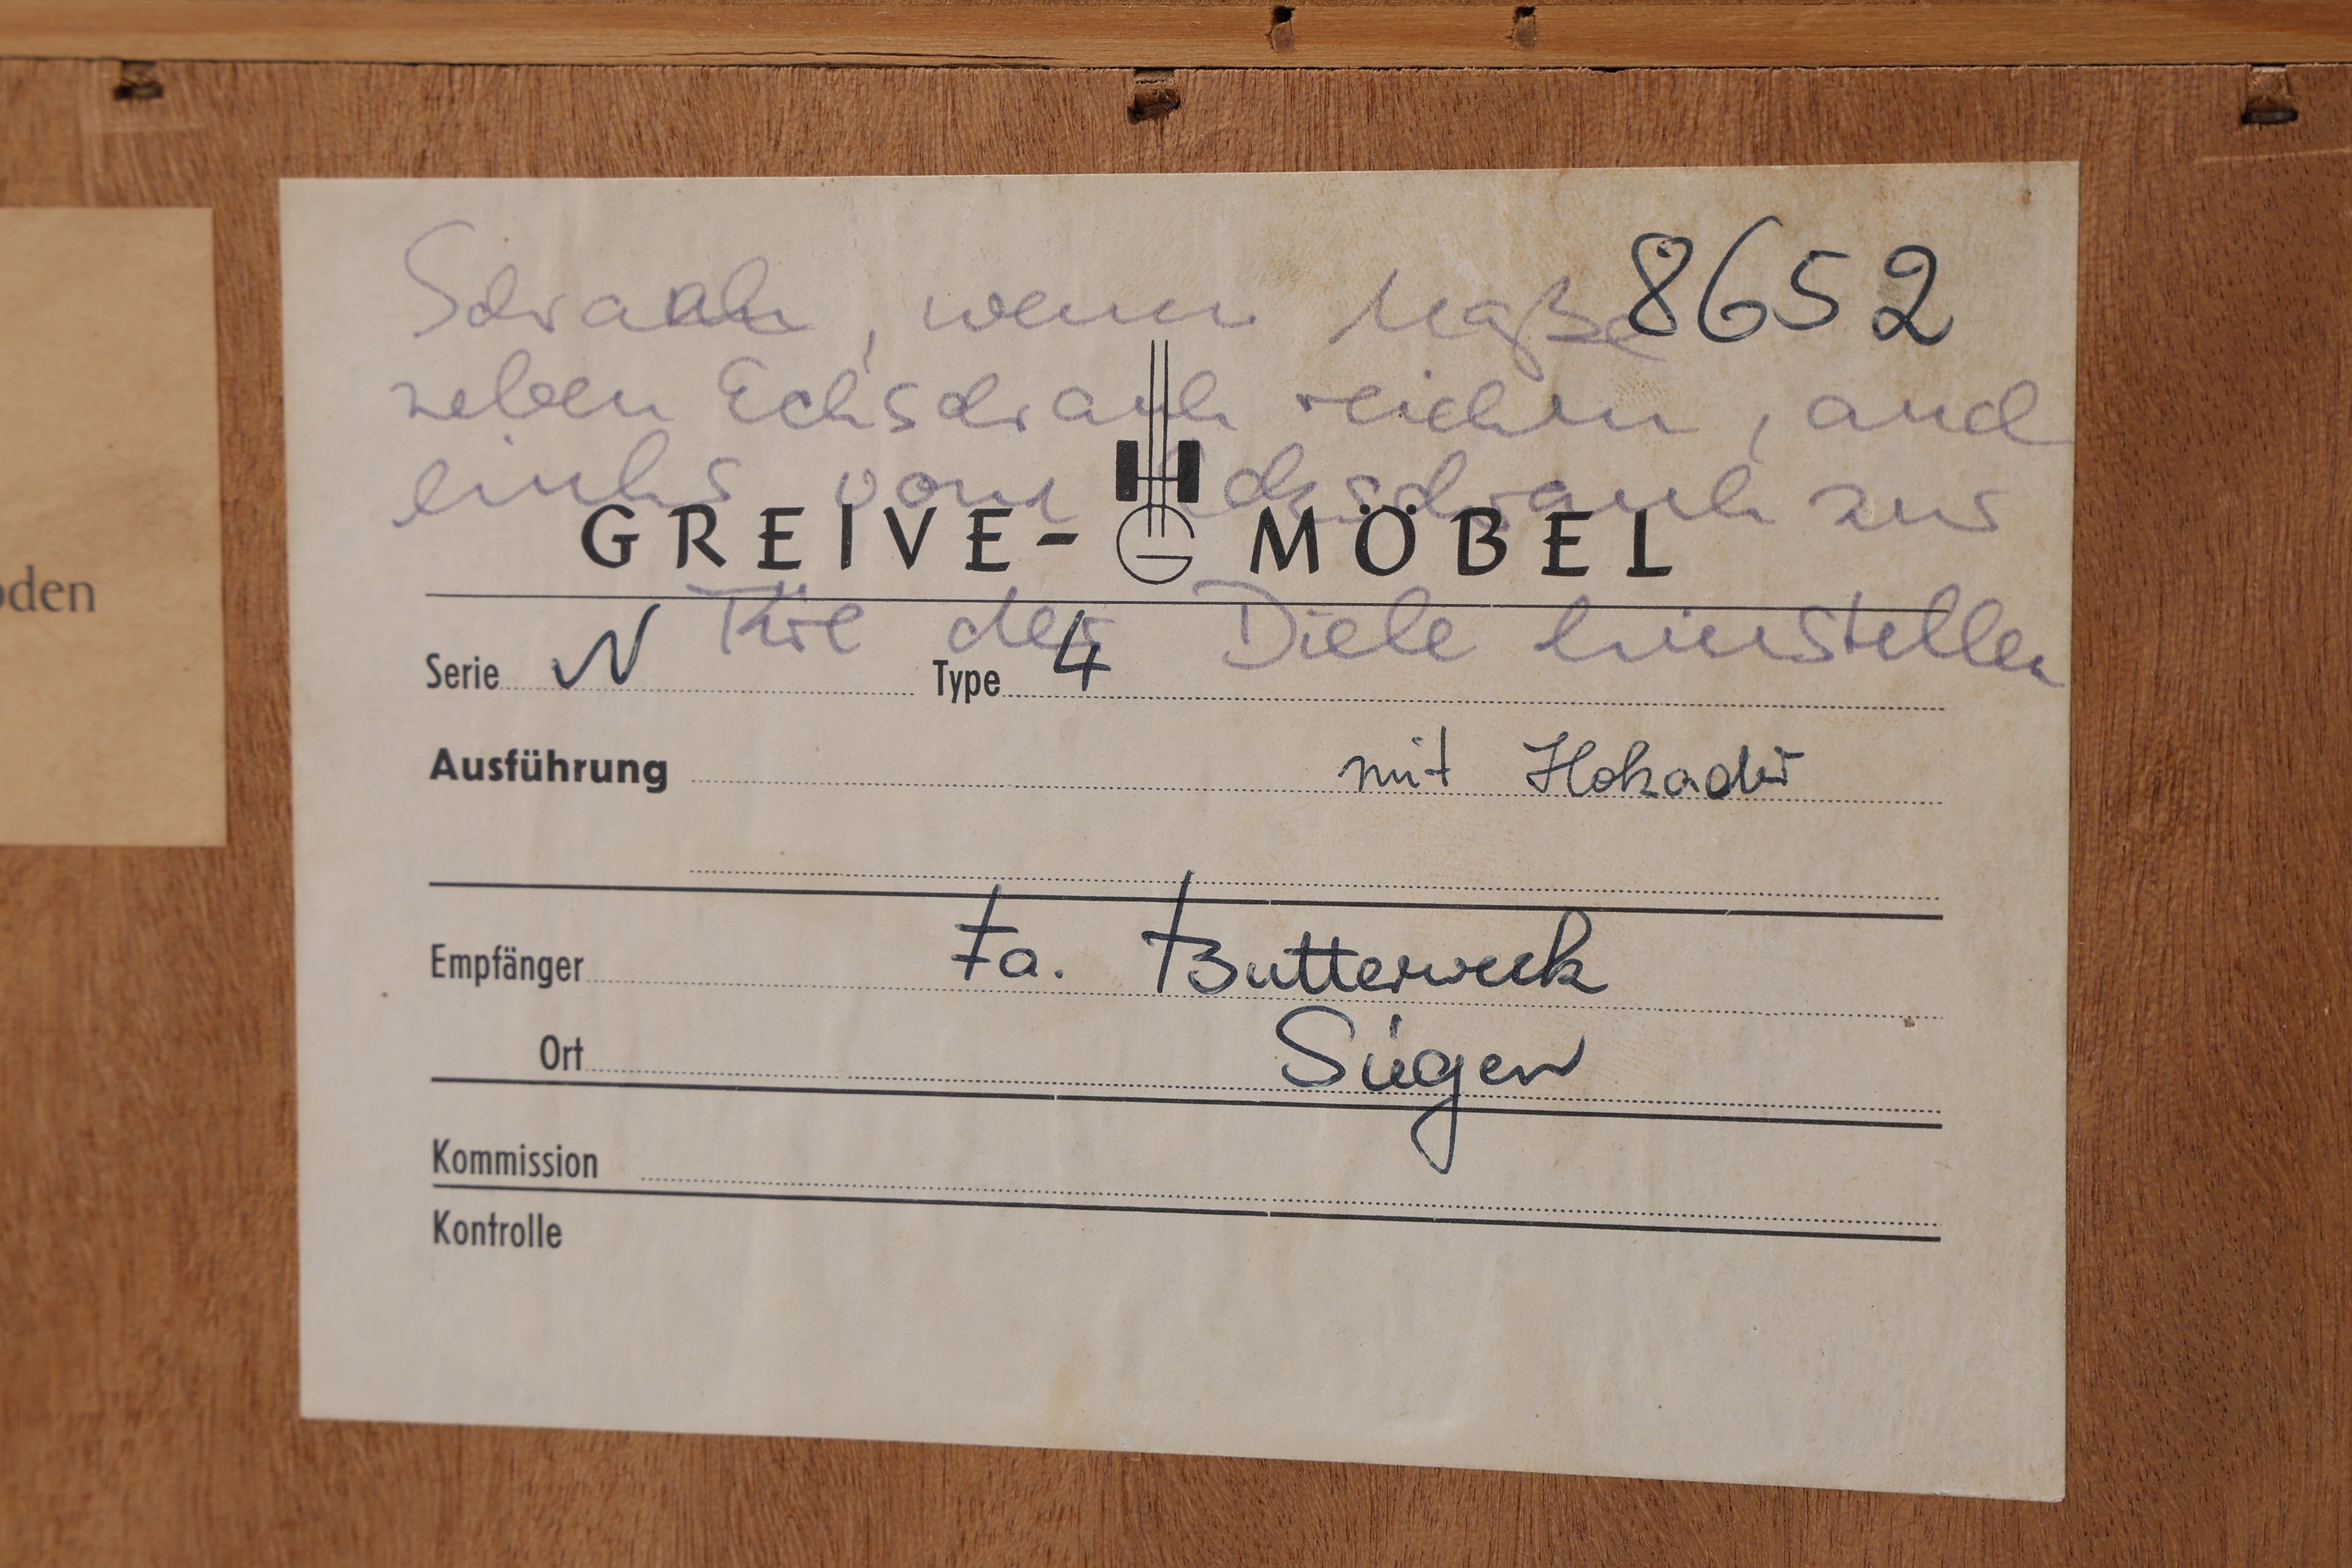 Schrank, wenn Maße 8652
neben Eckschrank reichen, and
links vom Eckschrank zur
GREIVE-MÖBEL
Türe der Diele hinstellen
Serie N Type 4
Ausführung mit
Empfänger Fa. Butterweck
Ort Siegen
Kommission
Kontrolle
oden